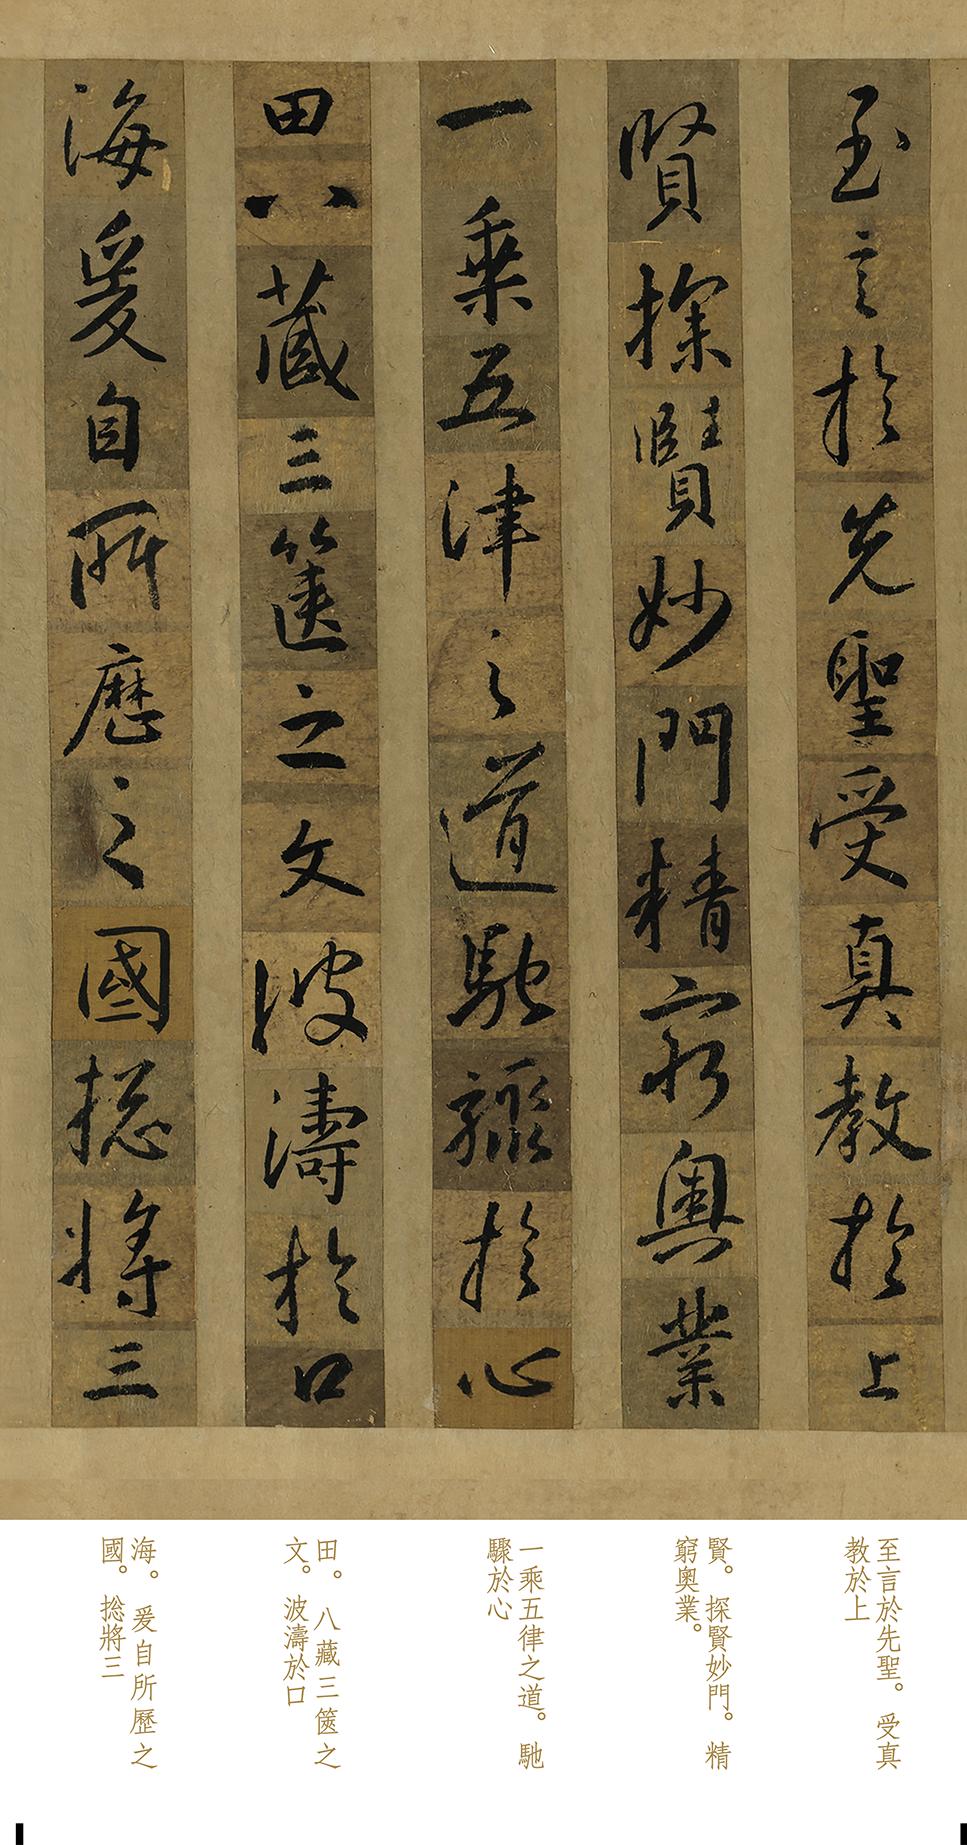 至言於先聖受真教於上
賢探賢妙門精窮奧業
一乘五律之道馳驟於心
田八藏三篋之文波濤於口
海爰自所歷之國捴將三
至言於先聖。受真
教於上
賢。探賢妙門。精
窮奧業。
一乘五律之道。馳
驟於心
田。八藏三篋之
文。波濤於口
海。爰自所歷之
國。捴將三